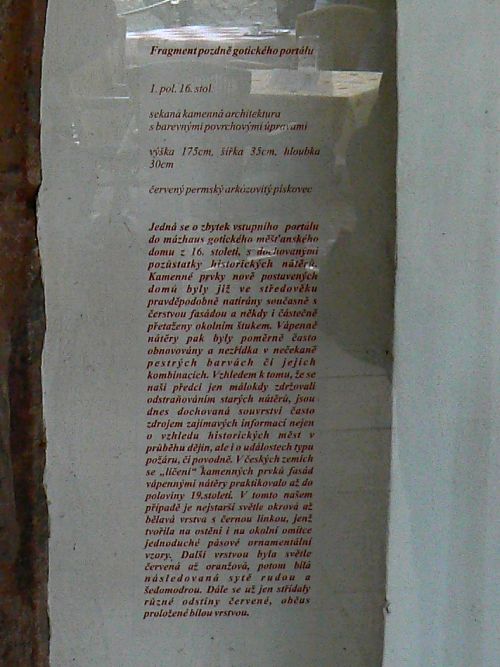 Fragment pozdně gotického portálu
1. pol. 16. stol.
sekaná kamenná architektura
s barevnými povrchovými úpravami
výška 175cm, šířka 35cm, hloubka
30cm
červený permský arkózovitý pískovec
Jedná se o zbytek vstupního portálu
do mázhaus gotického měšťanského
domu z 16. století, s dochovanými
pozůstatky historických nátěrů.
Kamenné prvky nově postavených
domů byly již ve středověku
pravděpodobně natírány současně s
čerstvou fasádou a někdy i částečně
přetaženy okolním štukem. Vápenné
nátěry pak byly poměrně často
obnovovány a nezřídka v nečekaně
pestrých barvách či jejich
kombinacích. Vzhledem k tomu, že se
naši předci jen málokdy zdržovali
odstraňováním starých nátěrů, jsou
dnes dochovaná souvrství často
zdrojem zajímavých informací nejen
o vzhledu historických měst v
průběhu dějin, ale i o událostech typu
požáru, či povodně. V českých zemích
se „líčení“ kamenných prvků fasád
vápennými nátěry praktikovalo až do
poloviny 19.století. V tomto našem
případě je nejstarší světle okrová až
bělavá vrstva s černou linkou, jenž
tvořila na ostění i na okolní omítce
jednoduché pásové ornamentální
vzory. Další vrstvou byla světle
červená až oranžová, potom bílá
následovaná sytě rudou a
šedomodrou. Dále se už jen střídaly
různé odstíny červené, občas
proložené bílou vrstvou.